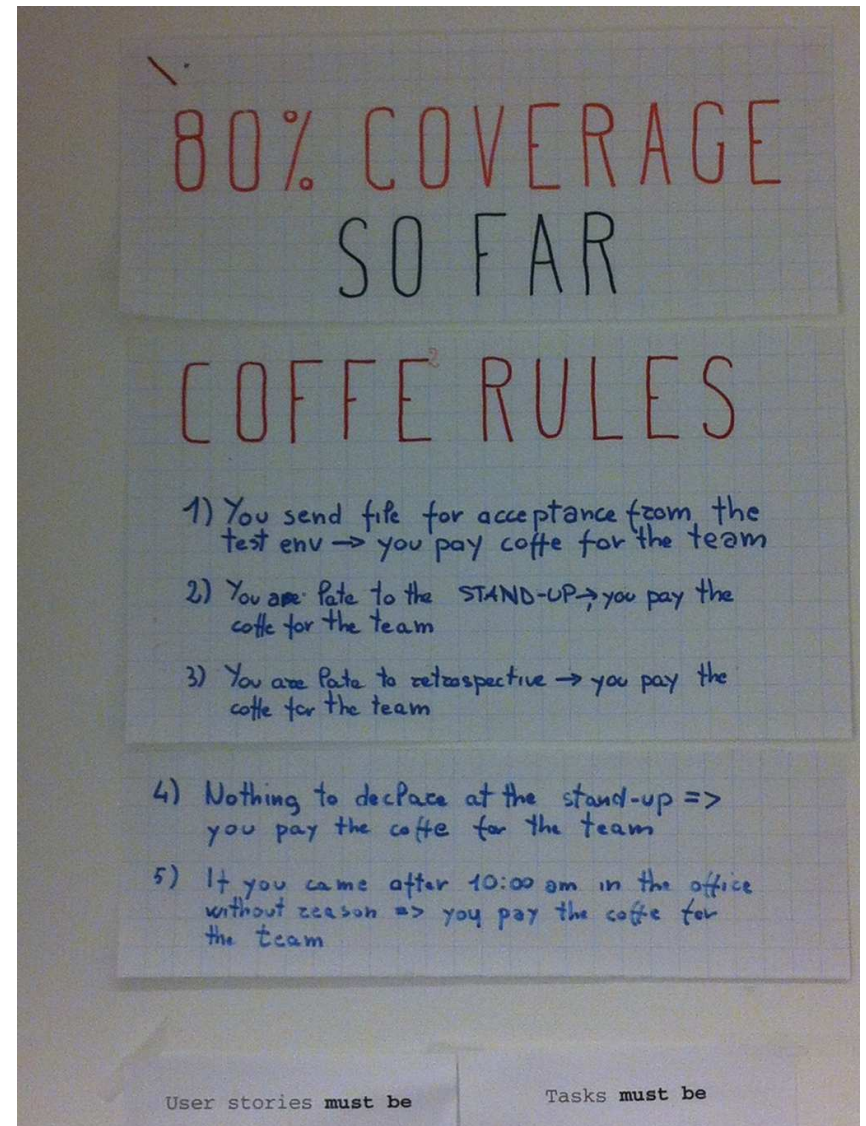 80% COVERAGE
SO FAR
COFFE RULES
1) You send file for acceptance from the
test env → you pay coffe for the team
2) You are late to the STAND-UP → you pay the
coffe for the team
3) You are late to retrospective → you pay the
coffe for the team
4) Nothing to declare at the stand-up =>
you pay the coffe for the team
5) If you came after 10:00 am in the office
without reason => you pay the coffe for
the team
User stories must be
Tasks must be